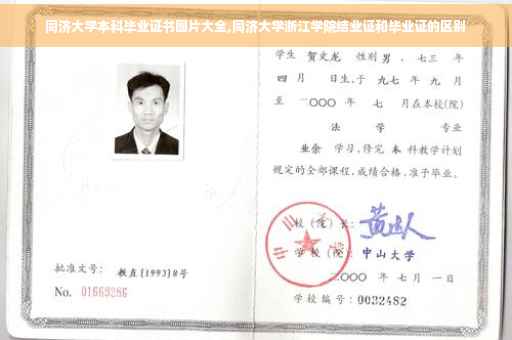 同济大学本科毕业证书图片大全,同济大学浙江学院结业证和毕业证的区别
学生 贺文龙 性别 男 ，七三 年
四 月 日生,于 九七 年 九 月
至 二〇〇〇 年 七 月在本校(院)
法 学 专业
业余 学习,修完 本 科教学计划
规定的全部课程,成绩合格,准予毕业。
校(院)长:
学校(院): 中山大学
二〇〇〇 年 七月 一日
学校编号: 0032482
批准文号: 教直[1993]8号
No. 01669286